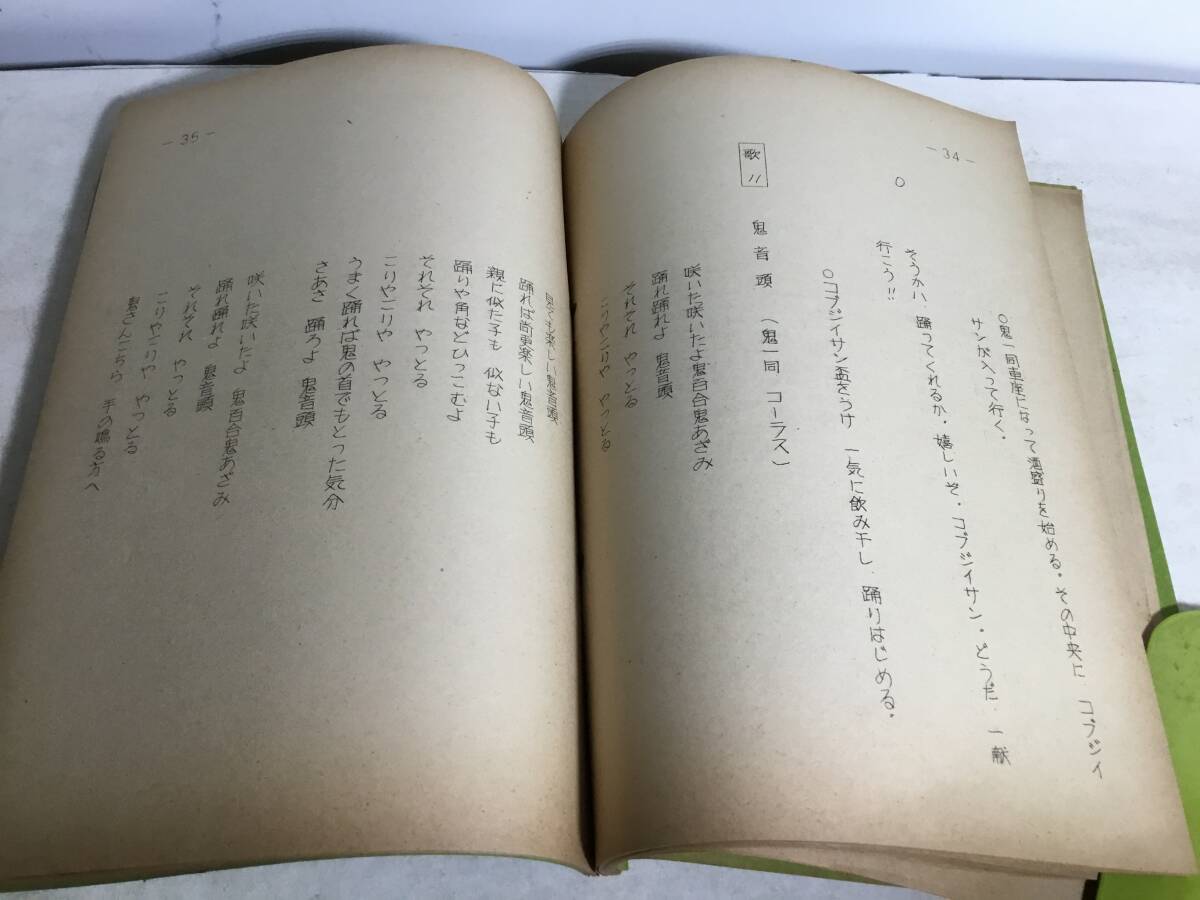 －34－
○鬼一同車座になって酒盛りを始める。その中央に コブジイ
サンが入って行く。
○ そうかい、踊ってくれるか。嬉しいぞ。コブジイサン。どうだ、一献
行こう!!
○コブジイサン盃をうけ 一気に飲み干し、踊りはじめる。
歌11 鬼音頭 (鬼一同 コーラス)
咲いた咲いたよ鬼百合鬼あざみ
踊れ踊れよ 鬼音頭
それそれ やっとる
こりやこりや やっとる
－35－
見ても楽しい鬼音頭
踊れば尚更楽しい鬼音頭
親に似た子も 似ない子も
踊りや角などひっこむよ
それそれ やっとる
こりやこりや やっとる
うまく踊れば鬼の首でもとった気分
さあさ 踊ろよ 鬼音頭
咲いた咲いたよ 鬼百合鬼あざみ
踊れ踊れよ 鬼音頭
それそれ やっとる
こりやこりや やっとる
鬼さんこちら 手の鳴る方へ